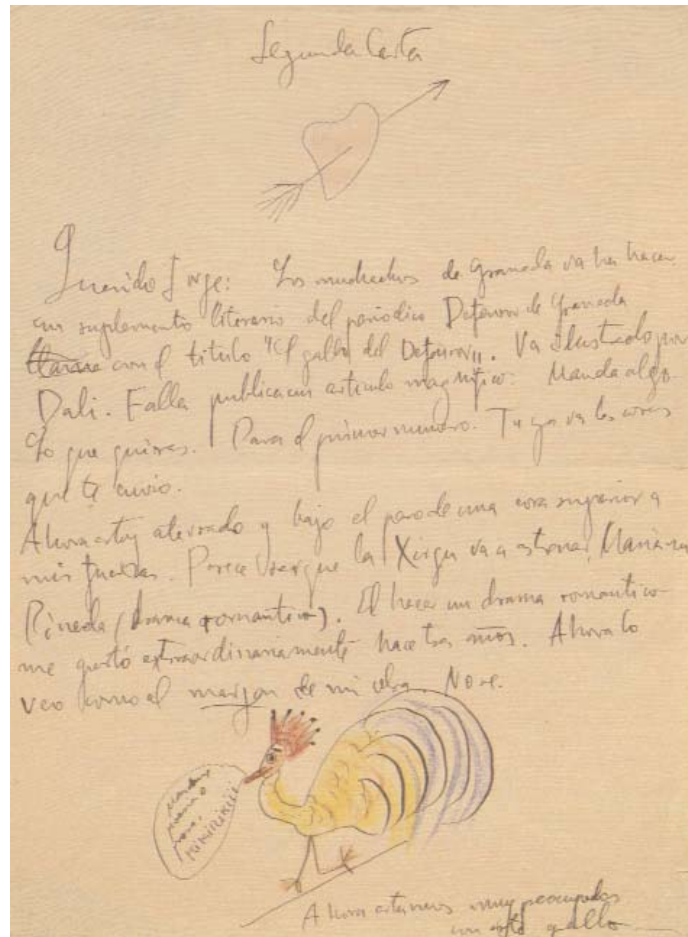 Segunda Carta
Querido Jorge: Los muchachos de Granada van ha hacer
un suplemento literario del periodico Defensor de Granada
con el titulo "El gallo del Defensor". Va ilustrado por
Dalí. Falla publica un articulo magnifico. Manda algo.
Lo que quieras. Para el primer numero. Tu ya ves las cosas
que te envio.
Ahora estoy aterrado y bajo el peso de una cosa superior a
mis fuerzas. Parece ser que la Xirgu va a estrenar Mariana
Pineda (drama romantico). El hacer un drama romantico
me gustó extraordinariamente hace tres años. Ahora lo
veo como al margen de mi obra. No se.
poema o
prosa.
KiKiRiKiii
Ahora estamos muy preocupados
con este gallo